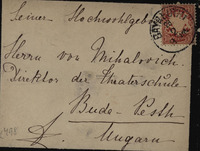 Seiner Hochwohlgeb
Herrn von Mihalovich
Direktor der Theaterschule
Buda-Pesth
Ungarn